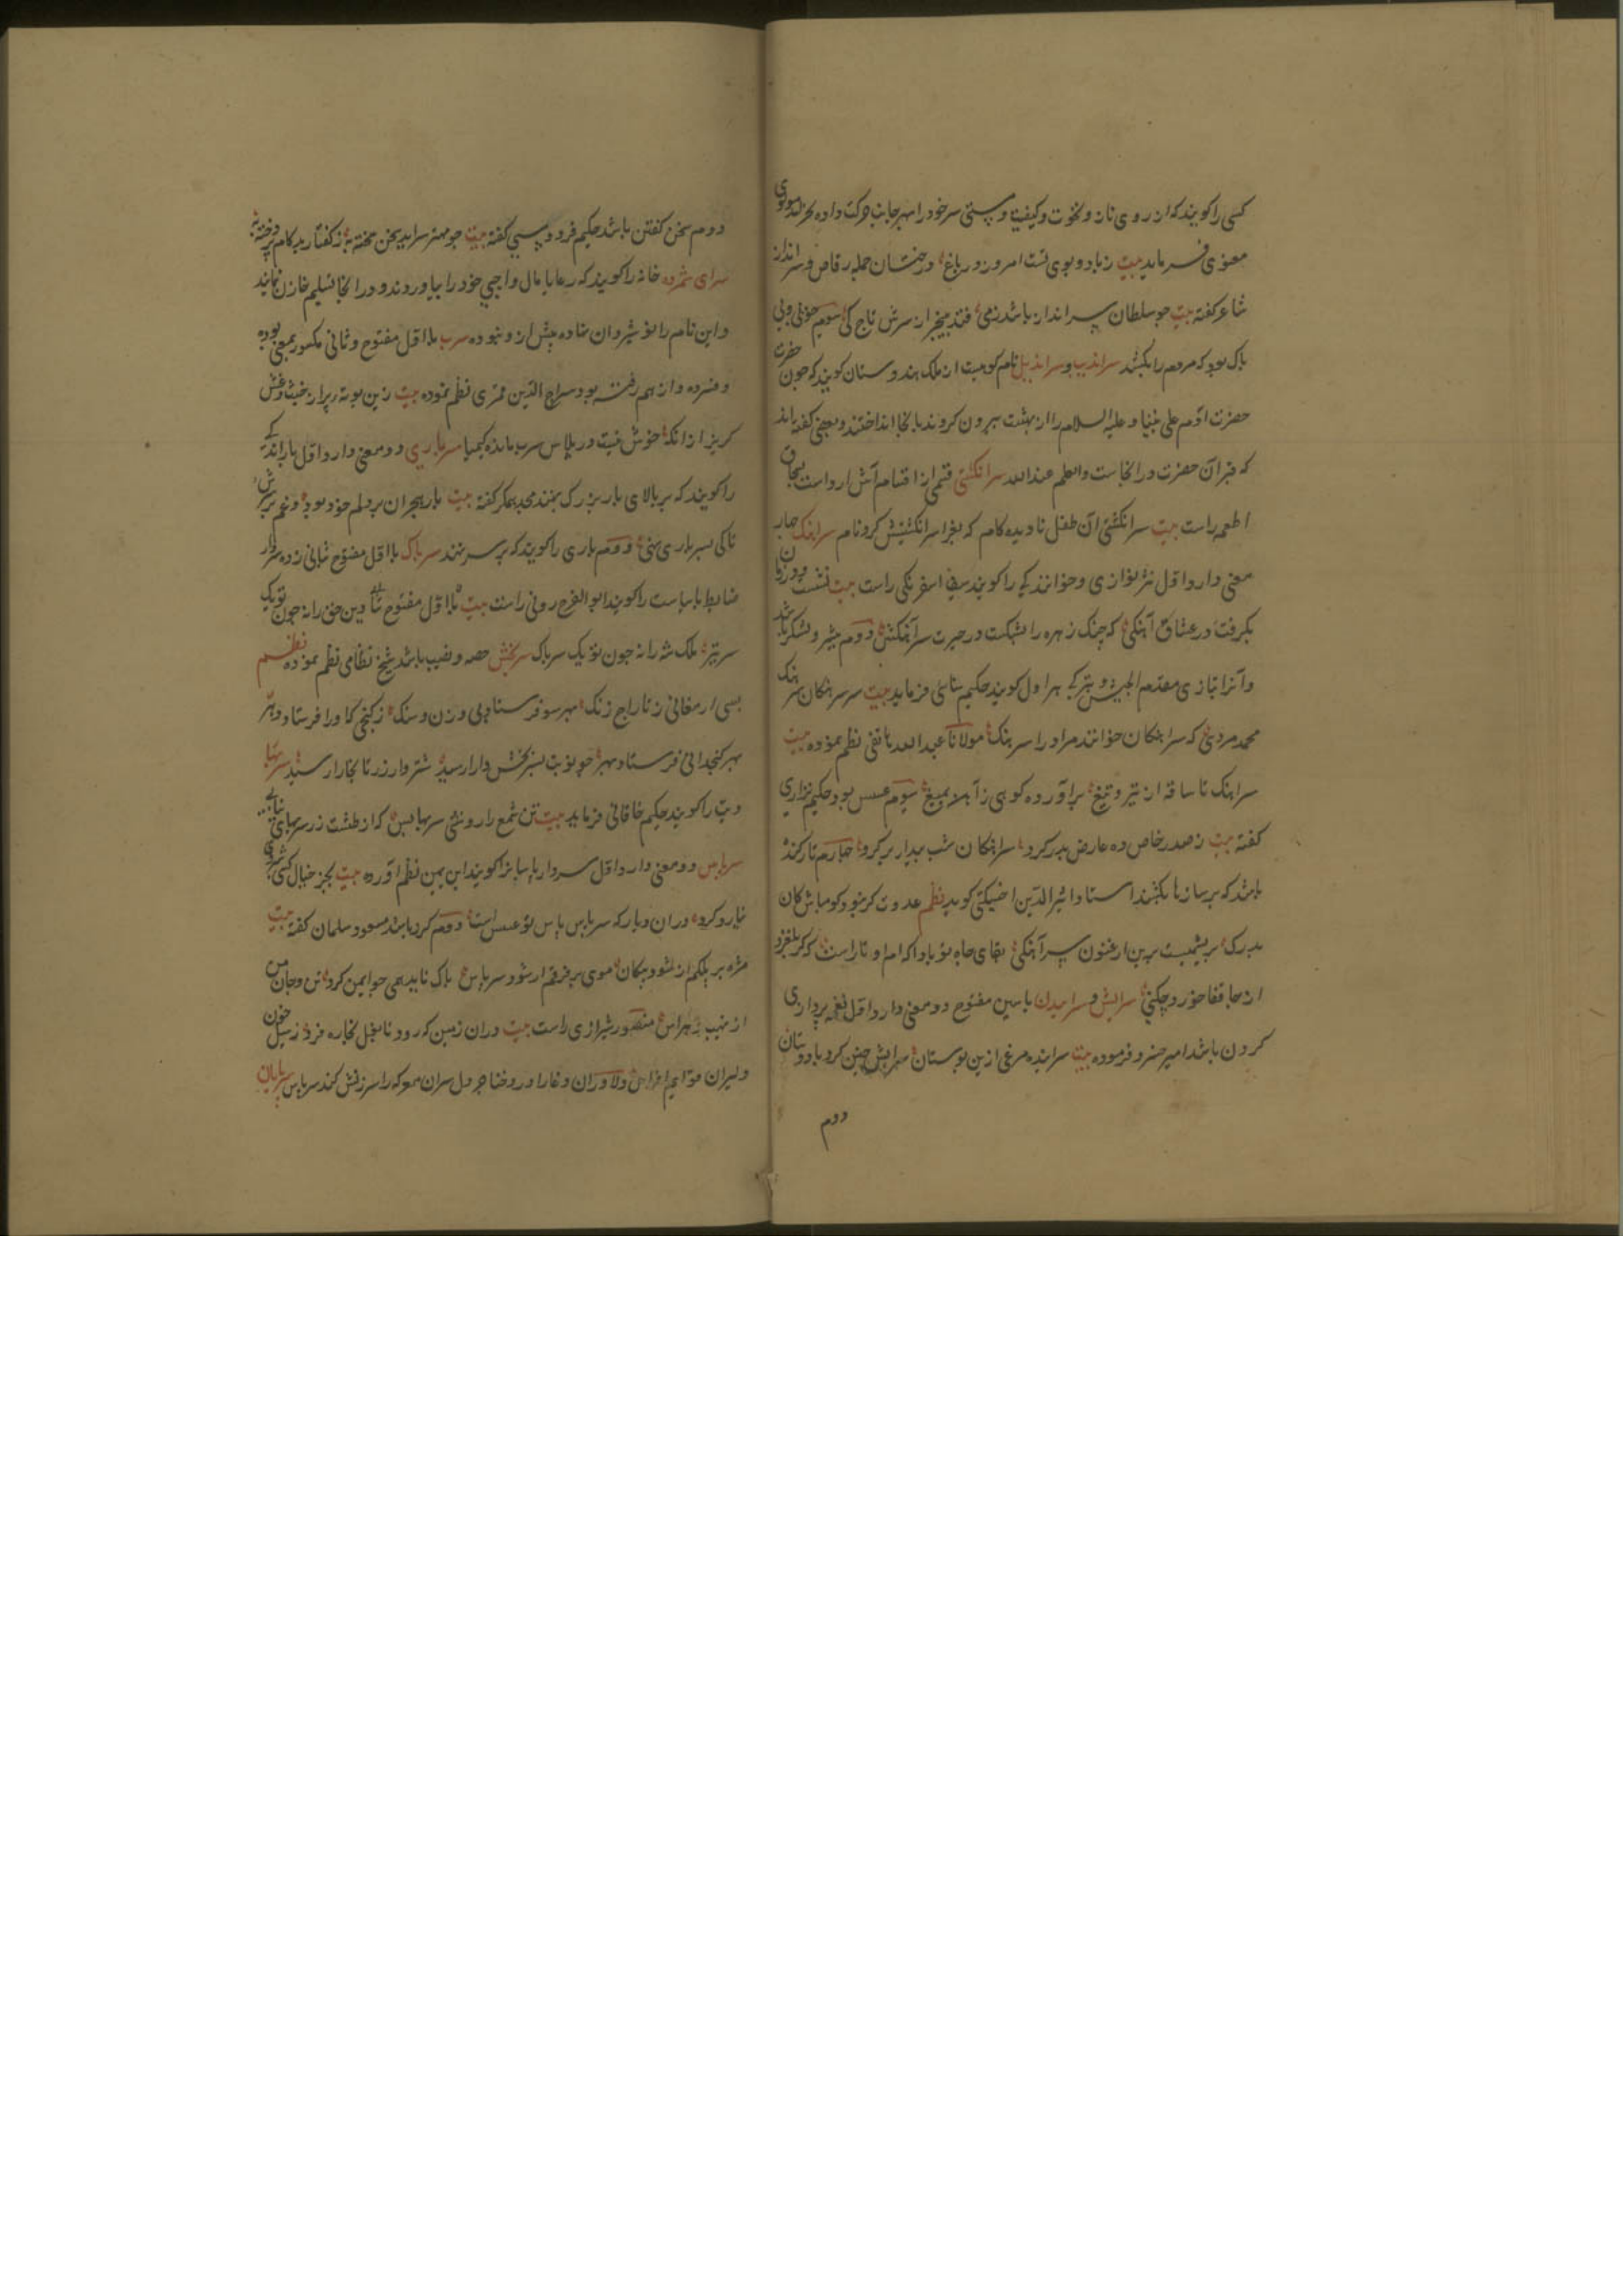 کسی را کویند که از روی ناز و نخوت و کیفیت و مستی سر خود را بهر جانب حرکت داده بخرامد مولوی
معنوی فرماید بیت ز باد و بوی تست امروز در باغ درختان جمله رقاص و سرانداز
شاعر کفته بیت چو سلطان سرانداز باشد زمی فتد بیخبر از سرش تاج کی سوم خونی و بی
باک بود که مردم را بکشد سراندیب و سراندیل نام کوهیست از ملک هندوستان کویند که چون حضرت
حضرت آدم علی نبینا و علیه السلام را از بهشت بیرون کردند بانجا انداختند و بعضی کفته اند
که قبر آن حضرت در انجاست والعلم عند الله سرانکشتی قسمی از اقسام آش آرد است بسحاق
اطعمه راست بیت سرانکشتی آن طفل نادیده کام که بغرا سرانکشتیش کرد نام سراهنک چهار
معنی دارد اول نوازی و خوانندکی را کویند سیف اسفرنکی راست بیت نشست و زدن
بکرفت در عشاق آهنکی که چنک زهره را بشکست در حیرت سرآهنکش دوم پیشرو لشکر باشد
و آنرا بتازی مقدم الجیش و بترکی هراول کویند حکیم سنائی فرماید بیت سر سرهنکان سرهنک
محمد مردی که سراهنکان خوانند مر او را سرهنک مولانا عبدالله هاتفی نظم نموده بیت
سراهنک تا ساقه از تیر و تیغ برآورده کوهی ز آهن بمیغ سیوم عسس بود حکیم نزاری
کفته بیت ز صدر خاص ده عارض بدر کرد سراهنکان شب بیدار بر کرد چهارم تار کنده
باشد که بر سازها بکشند استاد اثیرالدین اخسیکتی کوید نظم عدوت کر بنود کو مباش کان
بدرک بریشمیست برین ارغنون سرآهنکی بقای جاه تو باد اکه امداوتار است که کر بلغزد
از جا قفا خورد چکنی سرایش و سراییدن با سین مفتوح دو معنی دارد اول نغمه پردازی
کردن باشد امیر خسرو فرموده بیت سراینده مرغی ازین بوستان سرایش چنین کرد با دوستان
دوم
دوم سخن کفتن باشد حکیم فردوسی کفته بیت چو مهتر سراید سخن سخته به ز کفتار بد کام پردخته به
سرای شمرده خانه را کویند که رعایا مال واجبی خود را بیاورند و در انجا تسلیم خازن نمایند
و این نام را نوشیروان نهاده پیش از و نبوده سرب با اول مفتوح و ثانی مکسور بمعنی بوده
و فسرده و از هم رفته بود سراج الدین قمری نظم نموده بیت زین بوته پر از خبث و غش
کریز از انکه خوش نیست در پلاس سرب مانده کیمیا سرباری دو معنی دارد اول باراندکی
را کویند که بر بالای بار بزرک نهند مجد همکر کفته بیت بار هجران بر دلم خود بود و غم بر سرش
تا کی سرباری نهی دوم باری را کویند که بر سر نهند سرباک با اول مفتوح بثانی زده سردار
ضابط با سیاست را کویند ابوالفرج رونی راست بیت با اول مفتوح دین حق را نه چون تو یک
سر تیز ملک شه را نه چون تو یک سرباک سربخش حصه و نصیب باشد شیخ نظامی نظم نموده نظم
بسی ارمغانی ز تاراج زنک بهر سو فرستاد بی وزن و سنک ز کنجی که او را فرستاد دهر
بهر کنجدانی فرستاد بهر چو نوبت بسربخش دارا رسید شتروار زر تا بخارا رسید سربها
دیت را کویند حکیم خاقانی فرماید بیت تن شمع را روشنی سربها بس که از طشت زر سربهای نیابی
سرپاس دو معنی دارد اول سردار پاسبانرا کویند ابن یمین نظم آورده بیت بجز خیال کسی شب روی
نیارد کرد در ان دیار که سرپاس پاس تو عسس است دوم کرد باشد مسعود سلمان کفته بیت
مژه بر پلکم ار شود پیکان موی بر فرقم ار شود سرپاس باک ناید همی چو ایمن کرد تن و جان من
از نهیب و هراس منصور شیرازی راست بیت دران زمین که رود تا بغل بخاره فرو ز سیل خون
دلیران قوایم افراس دلاوران و غا را در و خنا جر دل سران معرکه را سرزنش کند سرپاس سرپایان